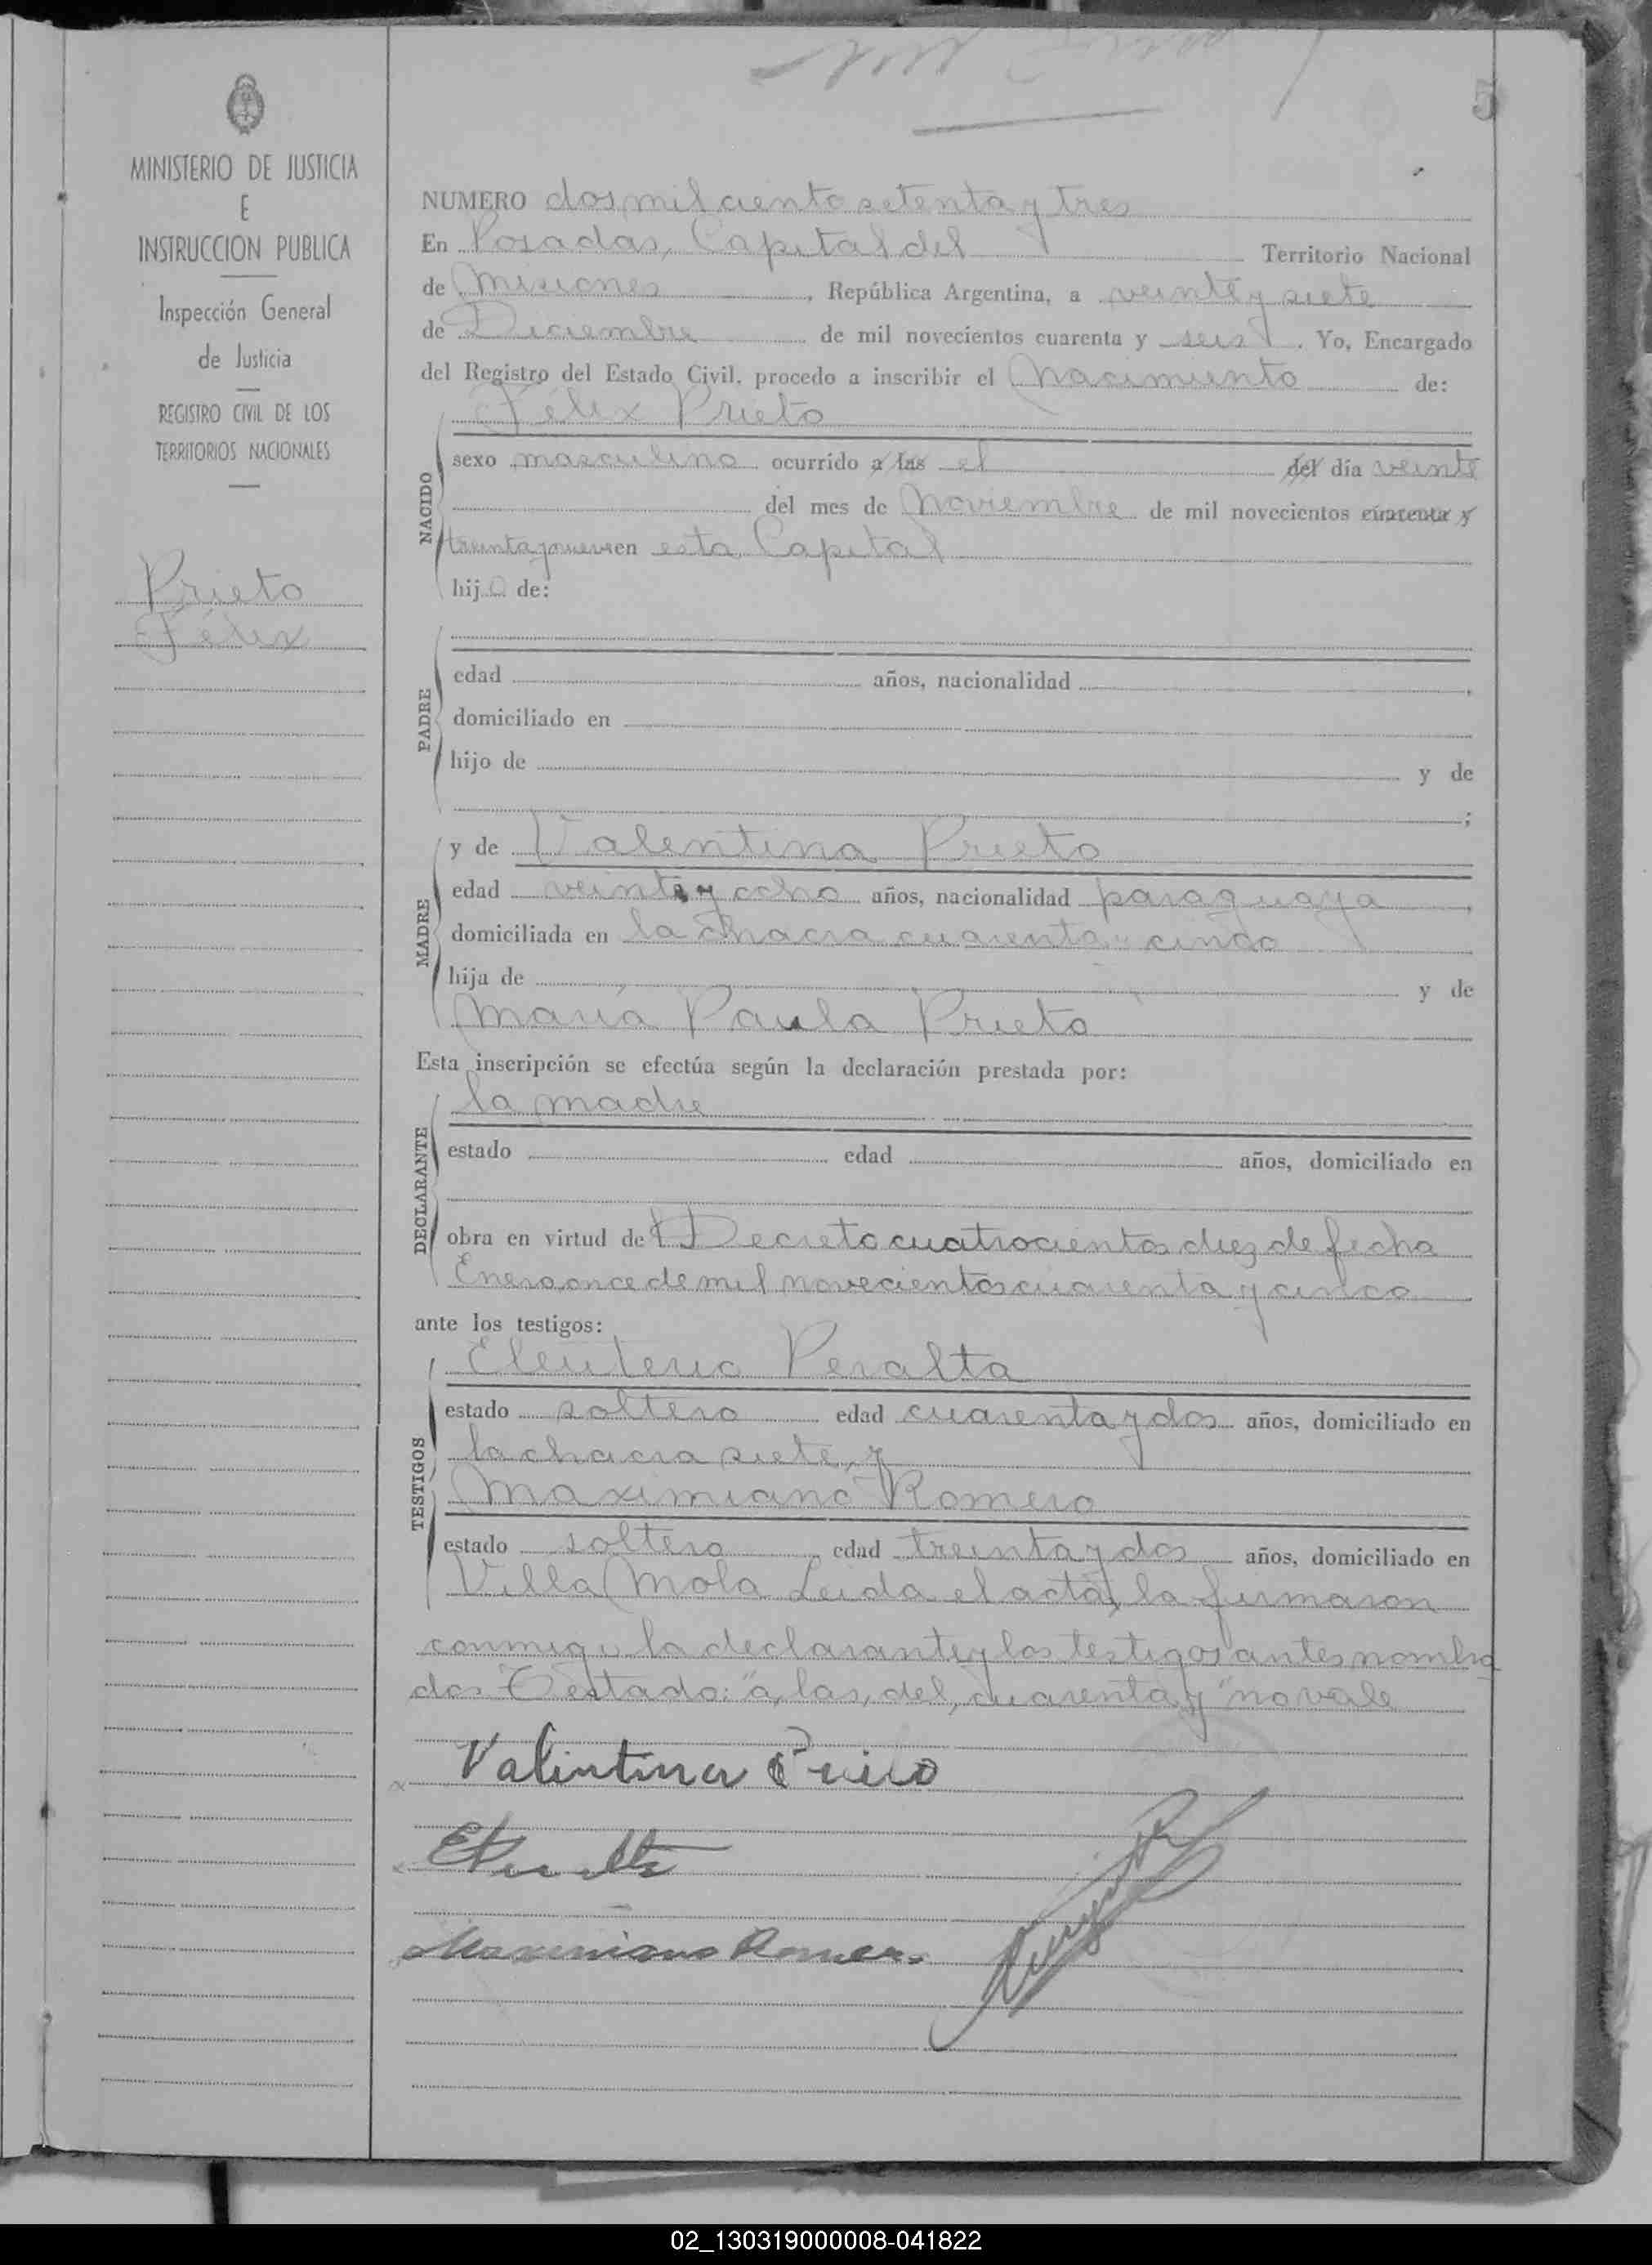 5
MINISTERIO DE JUSTICIA
E
INSTRUCCION PUBLICA
Inspección General
de Justicia
REGISTRO CIVIL DE LOS
TERRITORIOS NACIONALES
Prieto
Félix
NUMERO dos mil ciento setenta y tres
En Posadas, Capital del Territorio Nacional
de Misiones, República Argentina, a veinte y siete
de Diciembre de mil novecientos cuarenta y seis. Yo, Encargado
del Registro del Estado Civil, procedo a inscribir el Nacimiento de:
Félix Prieto
NACIDO
sexo masculino ocurrido a las el del día veinte
del mes de Noviembre de mil novecientos cuarenta y
treinta y nueve en esta Capital
hijo de:
PADRE
edad años, nacionalidad ,
domiciliado en
hijo de y de
;
MADRE
y de Valentina Prieto
edad veinte y ocho años, nacionalidad paraguaya,
domiciliada en la chacra cuarenta y cinco
hija de y de
María Paula Prieto
Esta inscripción se efectúa según la declaración prestada por:
DECLARANTE
la madre
estado edad años, domiciliado en
obra en virtud del Decreto cuatrocientos diez de fecha
Enero once de mil novecientos cuarenta y cinco
ante los testigos:
TESTIGOS
Eleuterio Peralta
estado soltero edad cuarenta y dos años, domiciliado en
la chacra siete, y
Maximiano Romero
estado soltero edad treinta y dos años, domiciliado en
Villa Mola Leida el acta, la firmaron
conmigo la declarante y los testigos antes nombra
dos Testado: "a, las, del, cuarenta y" no vale
Valintina
Maximiano Romero
02_130319000008-041822